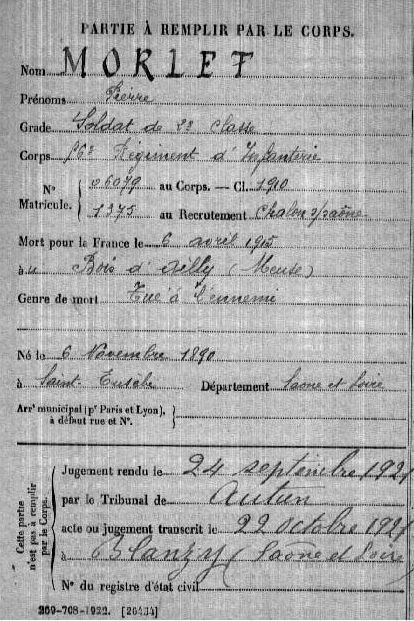 PARTIE À REMPLIR PAR LE CORPS.
Nom MORLET
Prénoms Pierre
Grade Soldat de 2e Classe
Corps 56e Régiment d'Infanterie
N° Matricule. { 06079 au Corps. — Cl. 1910
1375 au Recrutement Chalon s/Saône
Mort pour la France le 6 avril 1915
à u Bois d'Ailly (Meuse)
Genre de mort Tué à l'ennemi
Né le 6 Novembre 1890
à Saint-Eusèbe Département Saône et Loire
Arr' municipal (p' Paris et Lyon), à défaut rue et N°. }
Cette partie n'est pas à remplir par le Corps.
Jugement rendu le 24 septembre
par le Tribunal de Autun
acte ou jugement transcrit le 22 octobre
à Blanzy (Saone et Loire)
N° du registre d'état civil
369-708-1922. [26434]